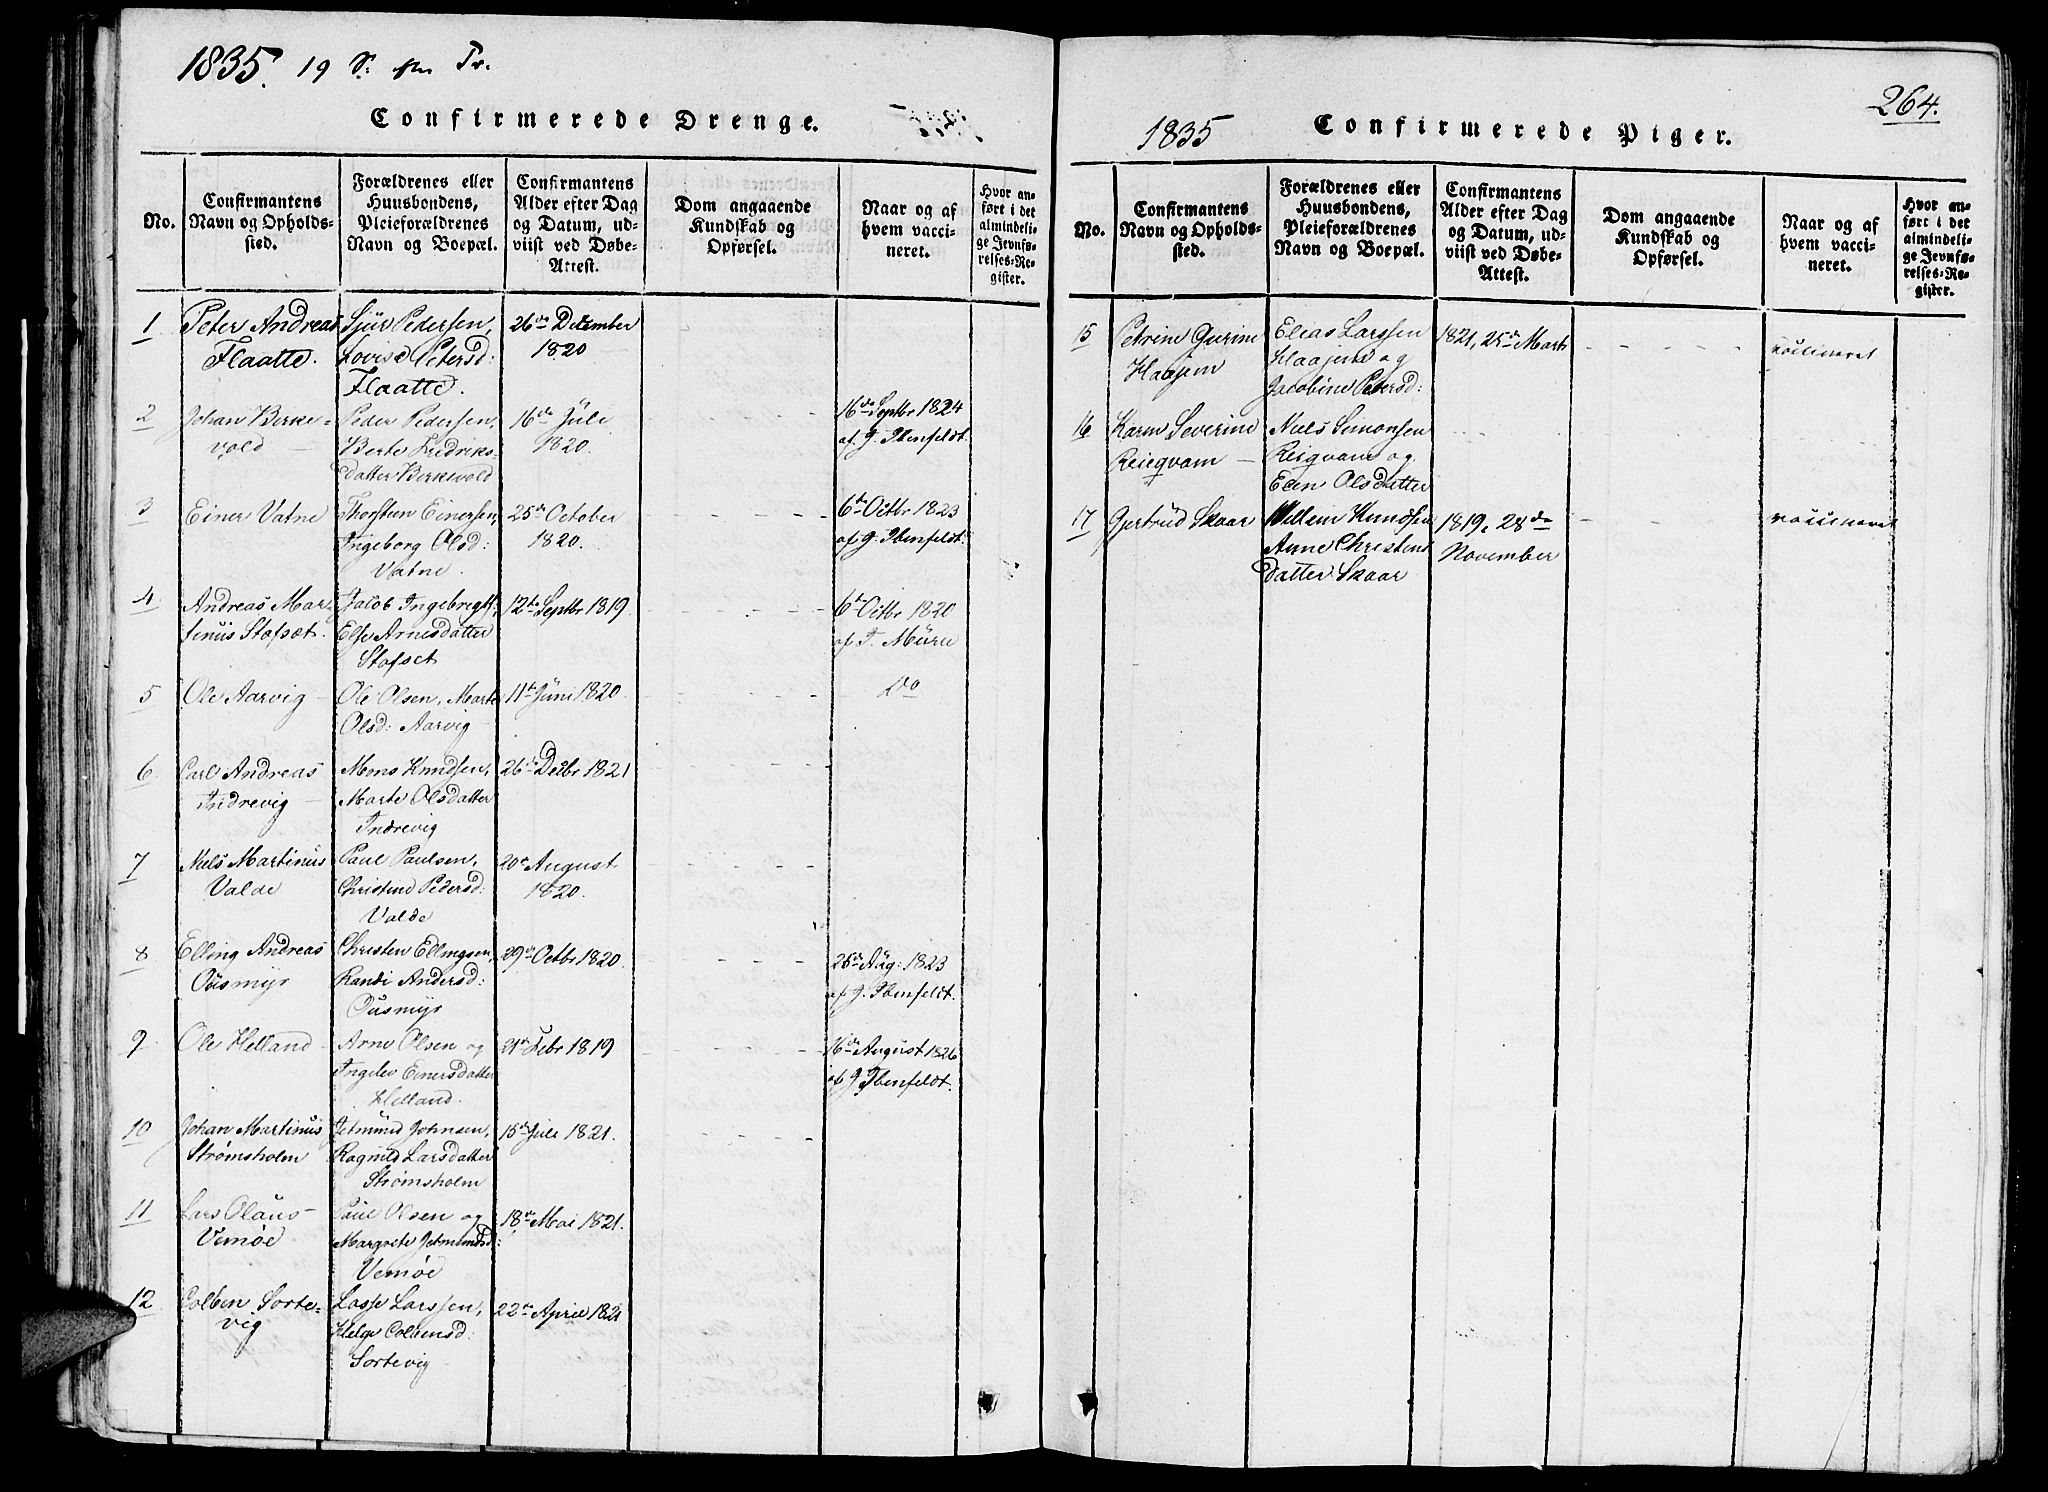 1835. 19 S. p. Tr.
Confirmerede Drenge.
No.
Confirmantens
Navn og Opholds-
sted.
Forældrenes eller
Huusbondens,
Pleieforældrenes
Navn og Boepæl.
Confirmantens
Alder efter Dag
og Datum, ud-
viist ved Døbe-
Attest.
Dom angaaende
Kundskab og
Opførsel.
Naar og af
hvem vacci-
neret.
Hvor an-
ført i det
almindeli-
ge Jevnfø-
relses-Re-
gister.
1
Peter Andreas
Flaatte.
Sjur Pedersen,
Lovise Petersd:
Flaatte.
26de December
1820
2
Johan Birke-
vold
Peder Pedersen,
Berte Fredriks-
datter Birkevold
16de Juli
1820.
16de Septbr 1824
af J. Ibenfeldt.
3
Einer Vatne
Thorsteen Einersen,
Ingeborg Olsd:
Vatne.
25de October
1820.
6te Octbr 1823
af J. Ibenfeldt.
4
Andreas Mar-
tinus Stafset.
Jacob Ingebrigts,
Else Arnesdatter
Stafset
12te Septbr 1819.
6te Octbr 1820
af T. Mürer
5
Ole Aarvig
Ole Olsen, Marte
Olsd: Aarvig
11te Juni 1820.
Do
6
Carl Andreas
Indrevig
Mons Knudsen,
Marte Olsdatter
Indrevig
26de Decbr 1821
7
Niels Martinus
Valde
Paul Paulsen,
Christine Pedersd:
Valde
20de August
1820.
8
Elling Andreas
Ousmyr
Christen Ellingsen,
Randi Andersd:
Ousmyr
29de Octbr 1820.
25de Aug: 1823
af J. Ibenfeldt.
9
Ole Helland
Arne Olsen og
Ingelev Einersdatter
Helland.
21de Febr 1819
16de August 1826
af J Ibenfeldt.
10
Johan Martinus
Strømsholm
Jetmund Johnsen,
Ragnild Larsdatter
Strømsholm
15de Juli 1821.
11
Lars Olaus
Vemøe
Paul Olsen og
Margrete Jetmundsd:
Vemøe
18de Mai 1821.
12
Colben Sorte-
vig
Lasse Larssen,
Helge Colbensd:
Sortevig
22de April 1821
264.
1835
Confirmerede Piger.
No.
Confirmantens
Navn og Opholds-
sted.
Forældrenes eller
Huusbondens,
Pleieforældrenes
Navn og Boepæl.
Confirmantens
Alder efter Dag
og Datum, ud-
viist ved Døbe-
Attest.
Dom angaaende
Kundskab og
Opførsel.
Naar og af
hvem vacci-
neret.
Hvor an-
ført i det
almindeli-
ge Jevnfø-
relses-Re-
gister.
15
Petrine Gurine
Haajem
Elias Larssen
Haajem og
Jacobine Petersd:
1821, 25de Marts
vaccineret
16
Karen Severine
Reiqvam
Niels Simonsen
Reiqvam og
Elen Olsdatter
17
Gjertrud Skaar
Willem Knudsen
Anne Christens
datter Skaar
1819, 28de
November
vaccineret